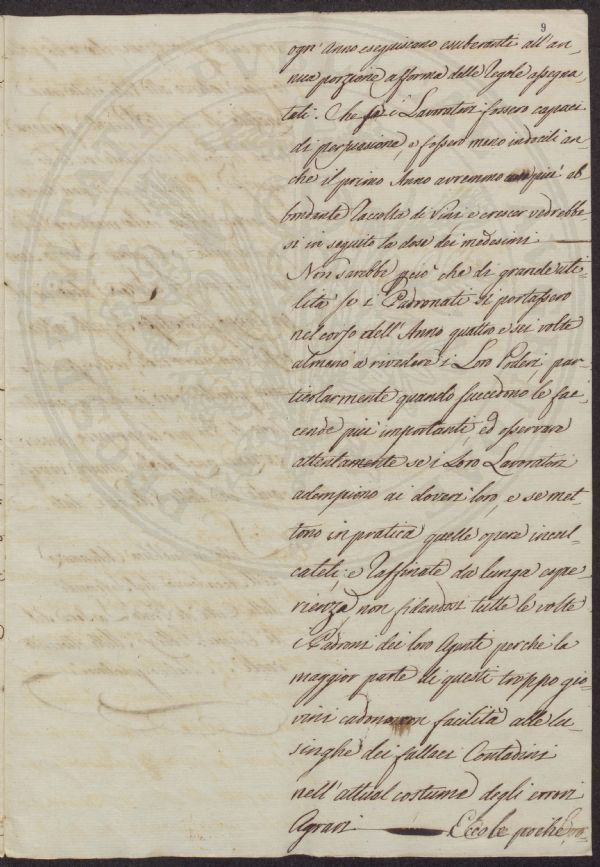 9
ogn' Anno eseguiscono esuberanti all'an,
nua porzione a forma delle Regole assegna,
tali. Che se i Lavoratori fossero capaci
di persuasione, e fossero meno indocili an,
che il primo Anno avremmo più ab,
bondante Raccolta di Vini e crescer vedrebbe,
si in seguito la dose dei medesimi
Non sarebbe perciò che di grande uti,
lità se i Padronati si portassero
nel corso dell'Anno quattro e sei volte
almeno a rivedere i Loro Poderi, par,
ticolarmente quando succedono le fac,
cende più importanti, ed osservare
attentamente se i Loro Lavoratori
adempiono ai doveri loro, e se met,
tono in pratica quelle opere incul,
cateli, e Raffinate da lunga espe,
rienza non fidandosi tutte le volte
i Padroni dei loro Agenti perche la
maggior parte di questi troppo gio,
vini cadono con facilità alle lu,
singhe dei fallaci Contadini
nell'attual costume degli errori
Agrari Eccole poche,